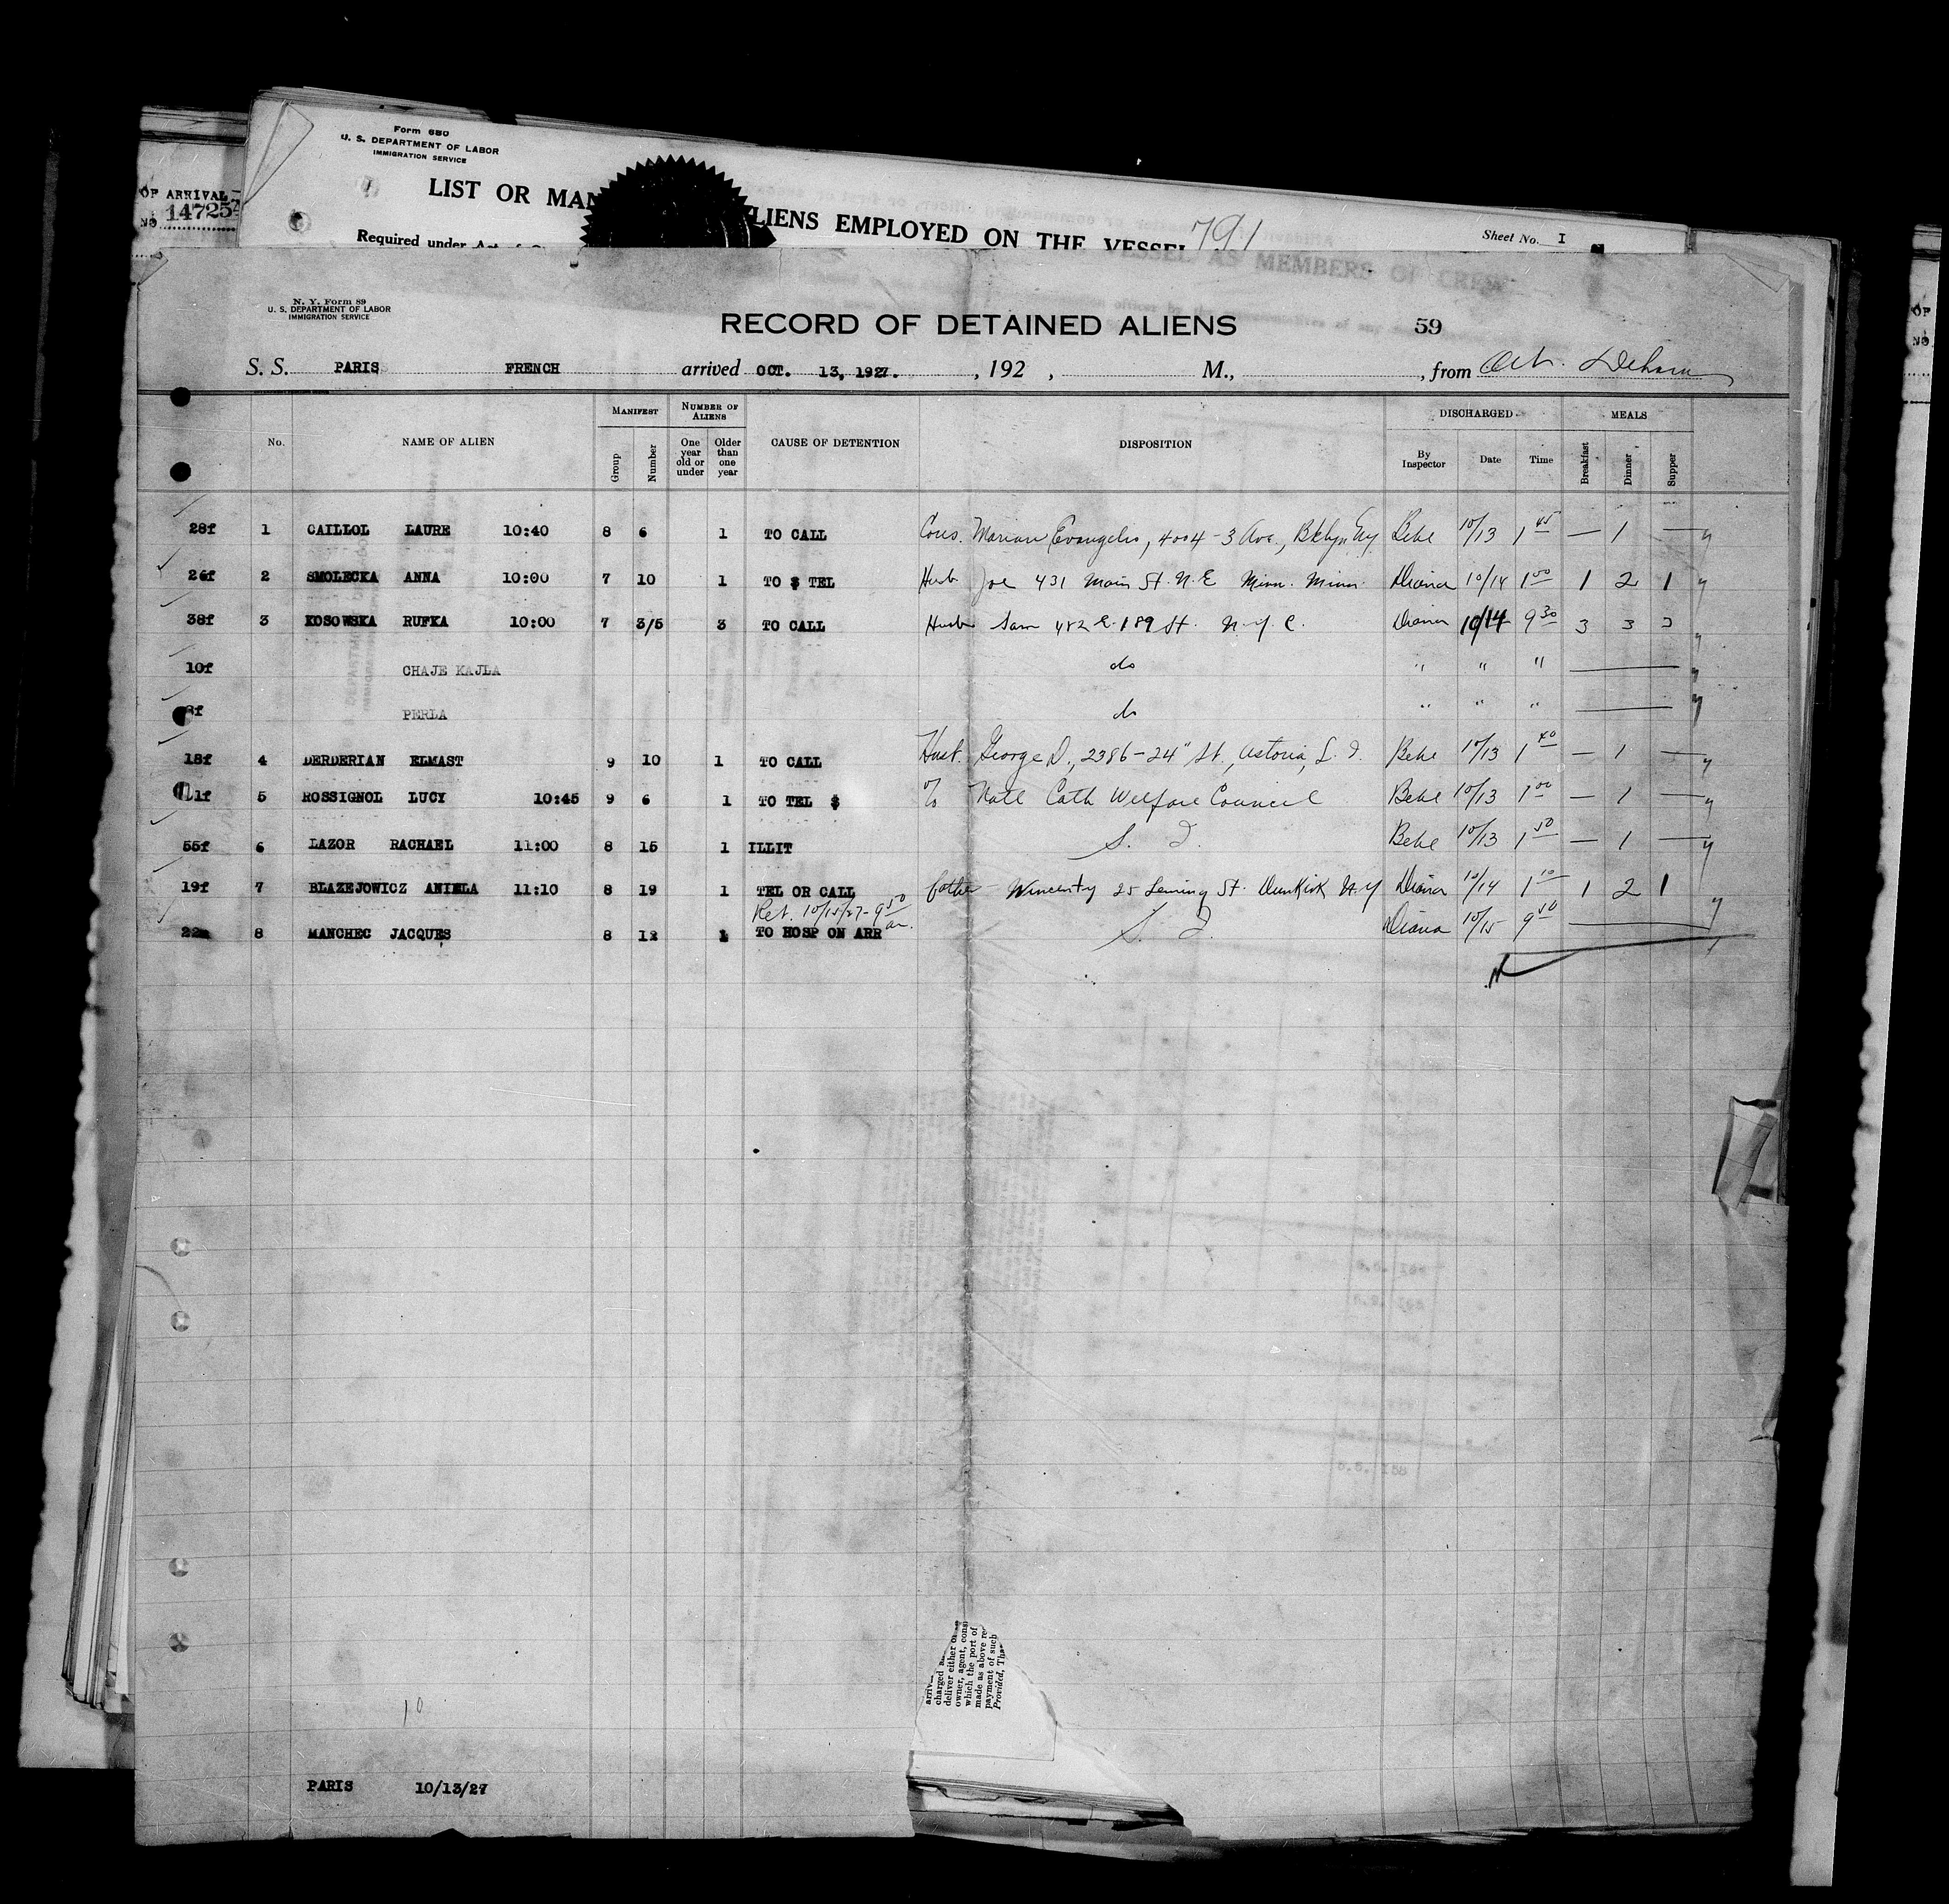 Form 680
U. S. DEPARTMENT OF LABOR
IMMIGRATION SERVICE
OF ARRIVAL
NO 147257
LIST OR MAN LIENS EMPLOYED ON THE VESSEL AS MEMBERS OF CREW
791
Sheet No. I
Required under Act
N. Y. Form 89
U. S. DEPARTMENT OF LABOR
IMMIGRATION SERVICE
RECORD OF DETAINED ALIENS 59
S. S. PARIS FRENCH arrived OCT. 13, 1927. , 192 , M., , from
No. NAME OF ALIEN MANIFEST Group Number NUMBER OF ALIENS One year old or under Older than one year CAUSE OF DETENTION DISPOSITION DISCHARGED By Inspector Date Time MEALS Breakfast Dinner Supper
28f 1 CAILLOL LAURE 10:40 8 6 1 TO CALL Cous. Marian Evangelis, 4004-3 Ave., Bklyn Ny Behe 10/13 1 45 — 1 —
26f 2 SMOLECKA ANNA 10:00 7 10 1 TO $ TEL Husb Joe 431 Main St. N.E Minn. Minn. Diana 10/14 1 00 1 2 1
38f 3 KOSOWSKA RUFKA 10:00 7 3/5 3 TO CALL Husb Sam 482 E. 189 St. N.Y.C. Diana 10/14 9 30 3 3 3
10f CHAJE KAJLA do " " "
8f PERLA do " " "
18f 4 DERDERIAN ELMAST 9 10 1 TO CALL Husb. George D., 2386-24" St., Astoria, L. I. Behe 10/13 1 40 — 1 —
1f 5 ROSSIGNOL LUCY 10:45 9 6 1 TO TEL $ % Natl Cath Welfare Council Behe 10/13 1 00 — 1 —
55f 6 LAZOR RACHAEL 11:00 8 15 1 ILLIT S. I. Behe 10/13 1 50 — 1 —
19f 7 BLAZEJOWICZ ANIELA 11:10 8 19 1 TEL OR CALL father Wincenty 25 Leming St. Dunkirk N.Y Diana 10/14 1 10 1 2 1
Ret. 10/15/27-9 50 am.
22m 8 MANCHEC JACQUES 8 12 1 TO HOSP ON ARR S. I. Diana 10/15 9 50
charged
deliver either
owner, agent, cons
which the port of
made as above re
payment of such
Provided, Tha
10
PARIS 10/13/27